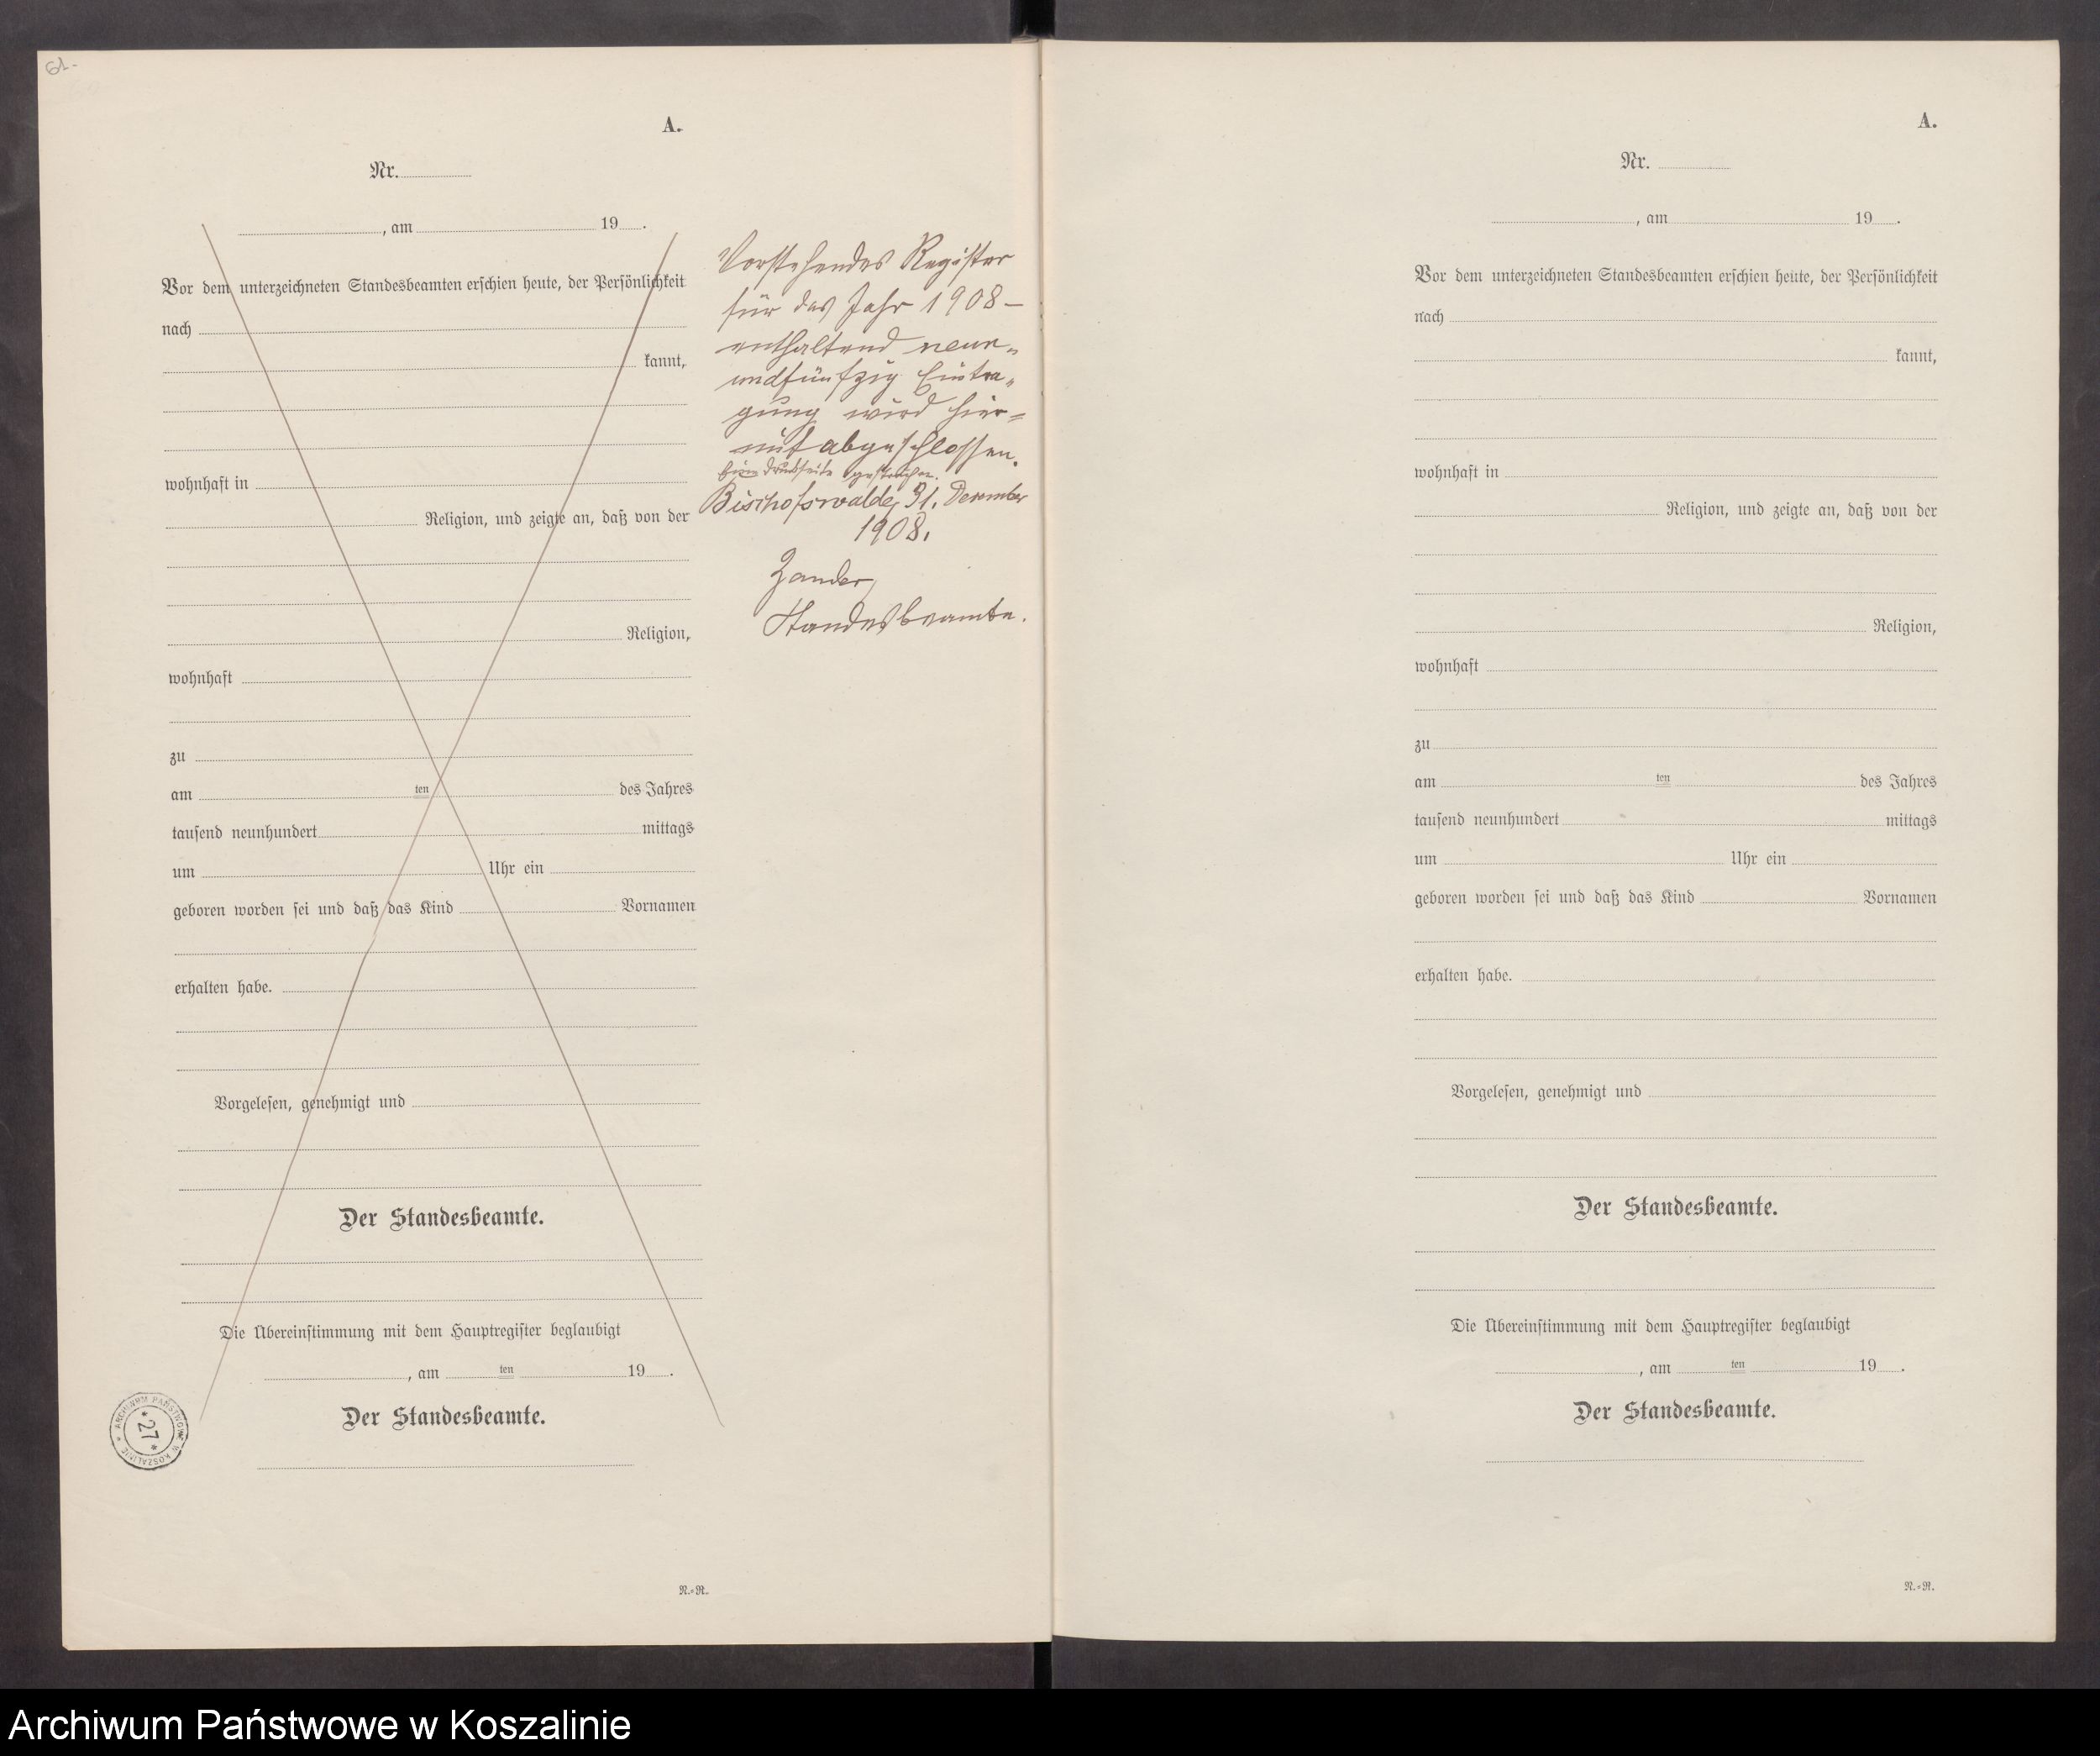 61.
A.
Nr.
, am 19 .
Vor dem unterzeichneten Standesbeamten erschien heute, der Persönlichkeit
nach
kannt,
wohnhaft in
Religion, und zeigte an, daß von der
Religion,
wohnhaft
zu
am ten des Jahres
tausend neunhundert mittags
um Uhr ein
geboren worden sei und daß das Kind Vornamen
erhalten habe.
Vorgelesen, genehmigt und
Der Standesbeamte.
Die Übereinstimmung mit dem Hauptregister beglaubigt
, am ten 19 .
Der Standesbeamte.
ARCHIWUM PAŃSTWOWE W KOSZALINIE
* 27 *
N.=R.
Vorstehendes Register
für das Jahr 1908 –
enthaltend neun-
undfünfzig Eintra-
gung wird hier-
mit abgeschlossen.
Druckseite gestrichen.
Bischofswalde, 31. Dezember
1908.
Zander,
Standesbeamte.
A.
Nr.
, am 19 .
Vor dem unterzeichneten Standesbeamten erschien heute, der Persönlichkeit
nach
kannt,
wohnhaft in
Religion, und zeigte an, daß von der
Religion,
wohnhaft
zu
am ten des Jahres
tausend neunhundert mittags
um Uhr ein
geboren worden sei und daß das Kind Vornamen
erhalten habe.
Vorgelesen, genehmigt und
Der Standesbeamte.
Die Übereinstimmung mit dem Hauptregister beglaubigt
, am ten 19 .
Der Standesbeamte.
N.=R.
Archiwum Państwowe w Koszalinie